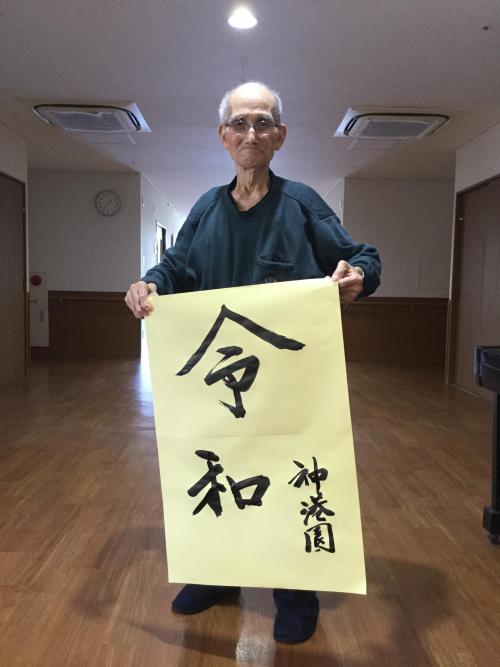 令和
神港園